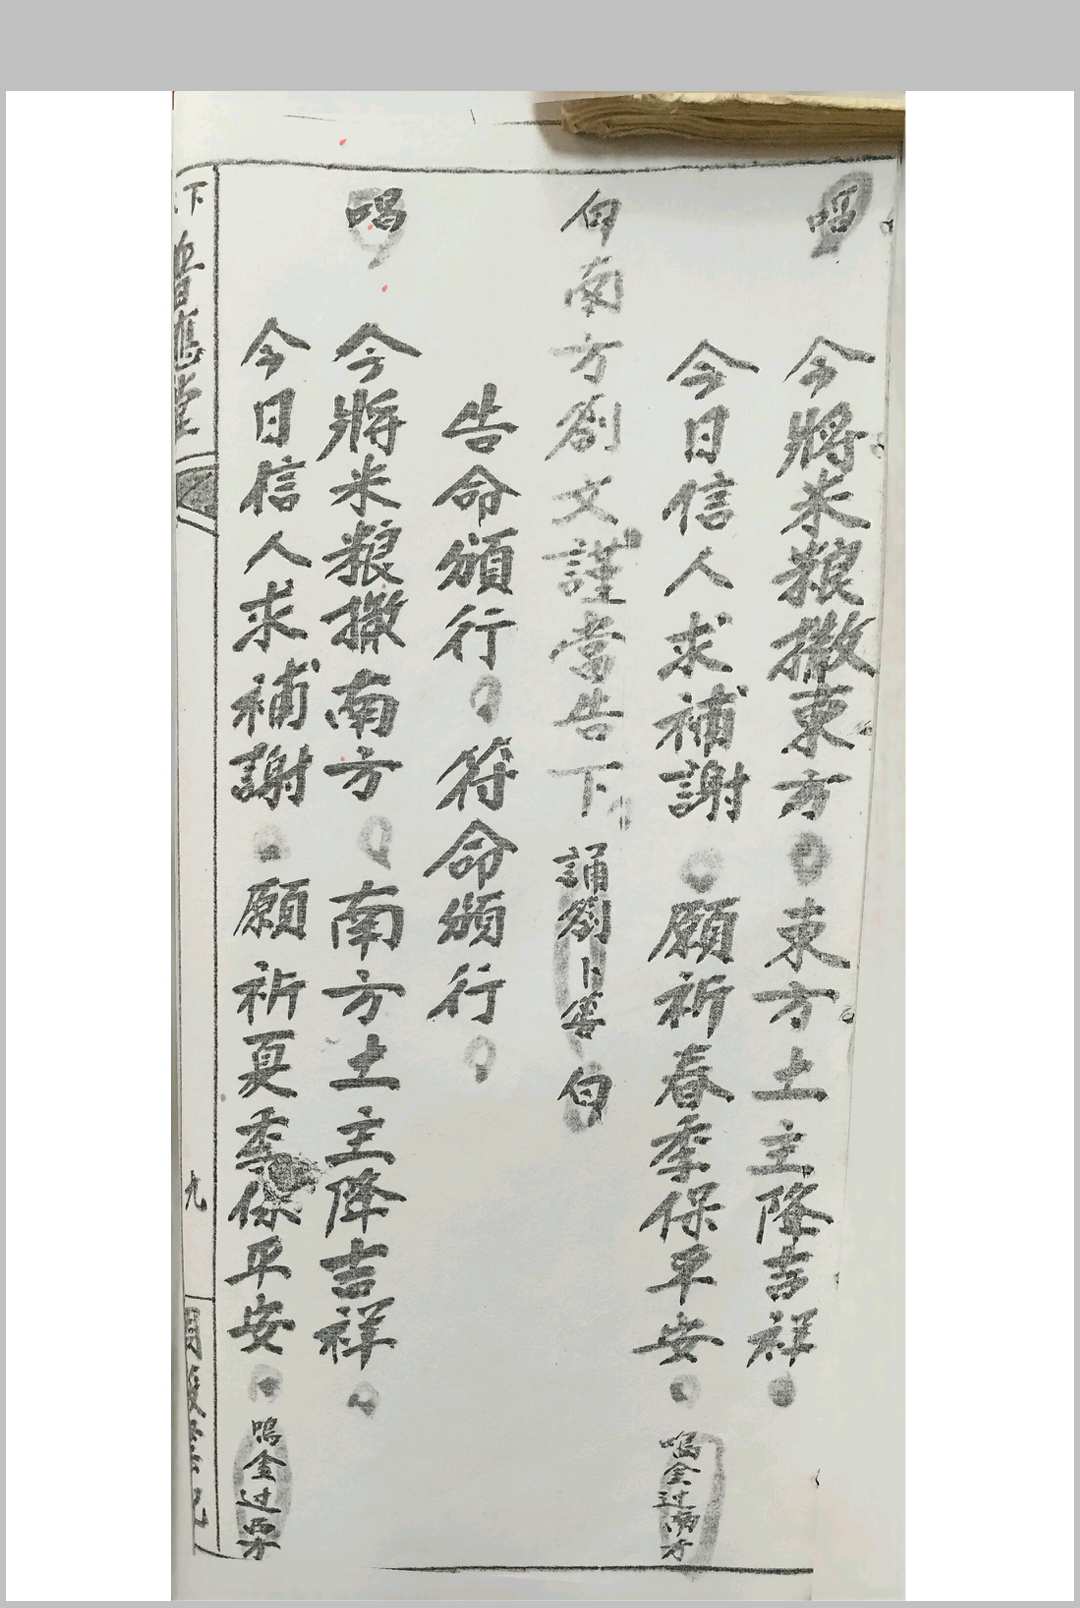 唱
今將米粮撒東方 東方土主降吉祥
今日信人求補謝 願祈春季保平安 鳴金过
南方劄文謹當告下 誦劄卜筶 白
告命頒行 符命頒行
唱 今將米粮撒南方 南方土主降吉祥
今日信人求補謝 願祈夏季保平安 鳴金过
下 普應堂
九